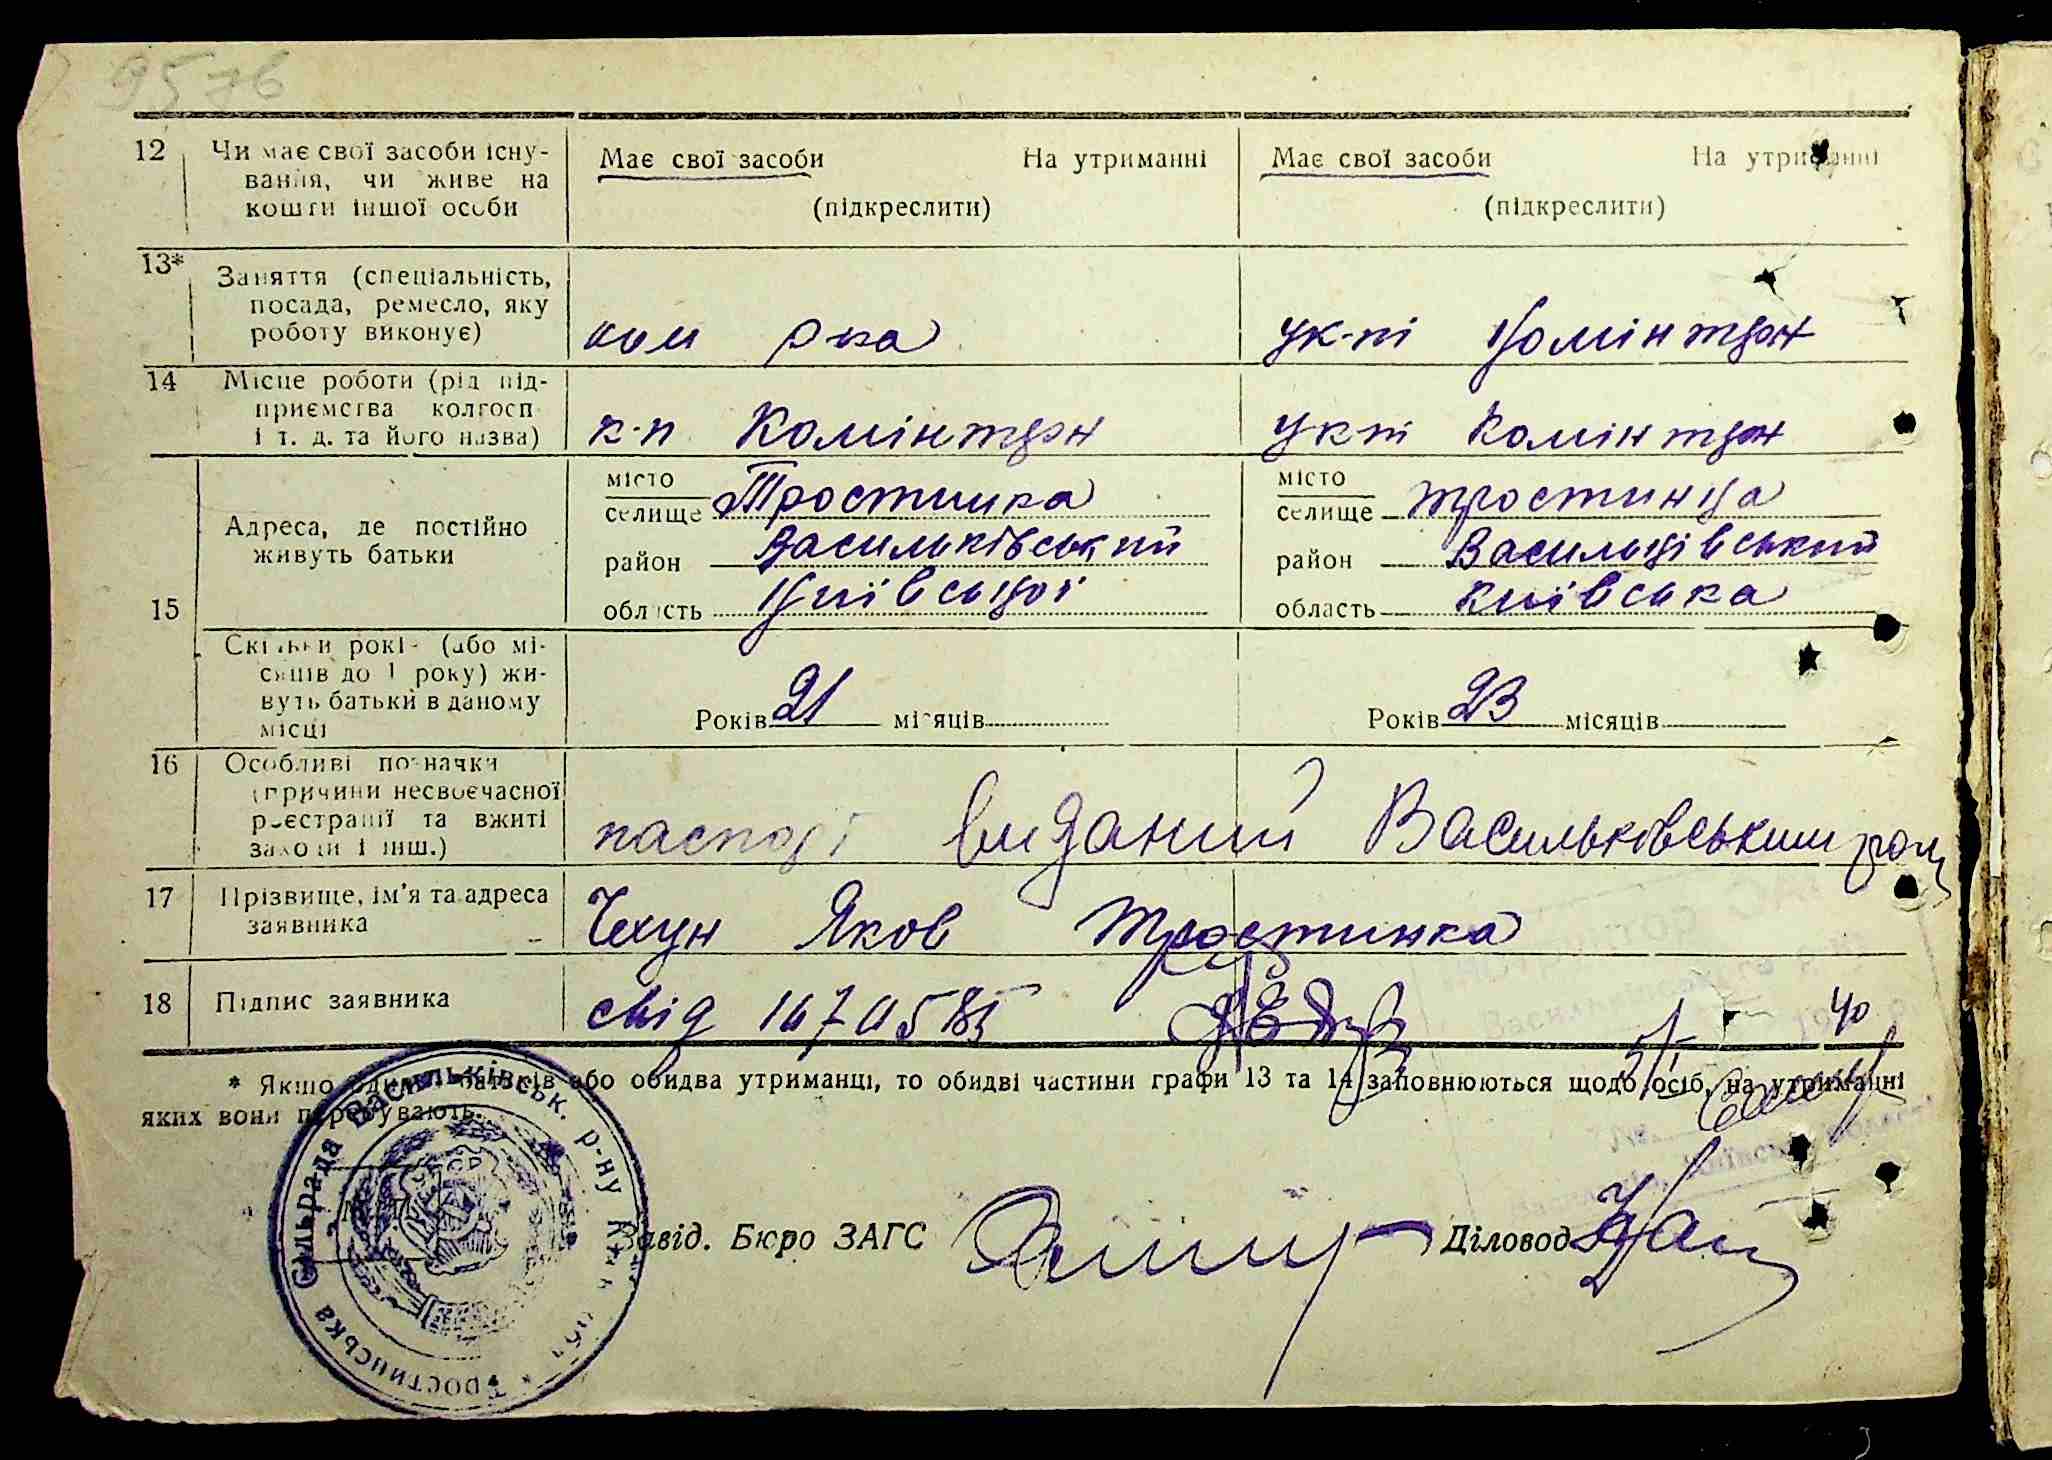 95 зв
12 Чи має свої засоби існу-
вання, чи живе на
кошти іншої особи
Має свої засоби На утриманні
(підкреслити)
Має свої засоби На утриманні
(підкреслити)
13* Заняття (спеціальність,
посада, ремесло, яку
роботу виконує)
ук-пі Комінтерн
14 Місце роботи (рід під-
приємства колгосп
і т. д. та його назва)
к-п Комінтерн
укпі Комінтерн
15 Адреса, де постійно
живуть батьки
місто
селище Тростинка
район Васильківський
область Київської
місто
селище Тростинка
район Васильківський
область Київська
Скільки років (або мі-
сяців до 1 року) жи-
вуть батьки в даному
місці
Років 21 місяців
Років 23 місяців
16 Особливі позначки
(причини несвоєчасної
реєстрації та вжиті
заходи і інш.)
паспорт виданий Васильковським
17 Прізвище, ім’я та адреса
заявника
Чехун Яков Тростинка
18 Підпис заявника
свід 40
* Якщо один з батьків або обидва утриманці, то обидві частини графи 13 та 14 заповнюються щодо осіб, на утриманні
яких вони перебувають.
Тростинська Сільрада Васильківськ. р-ну Київ обл. *
УРСР
Завід. Бюро ЗАГС Діловод